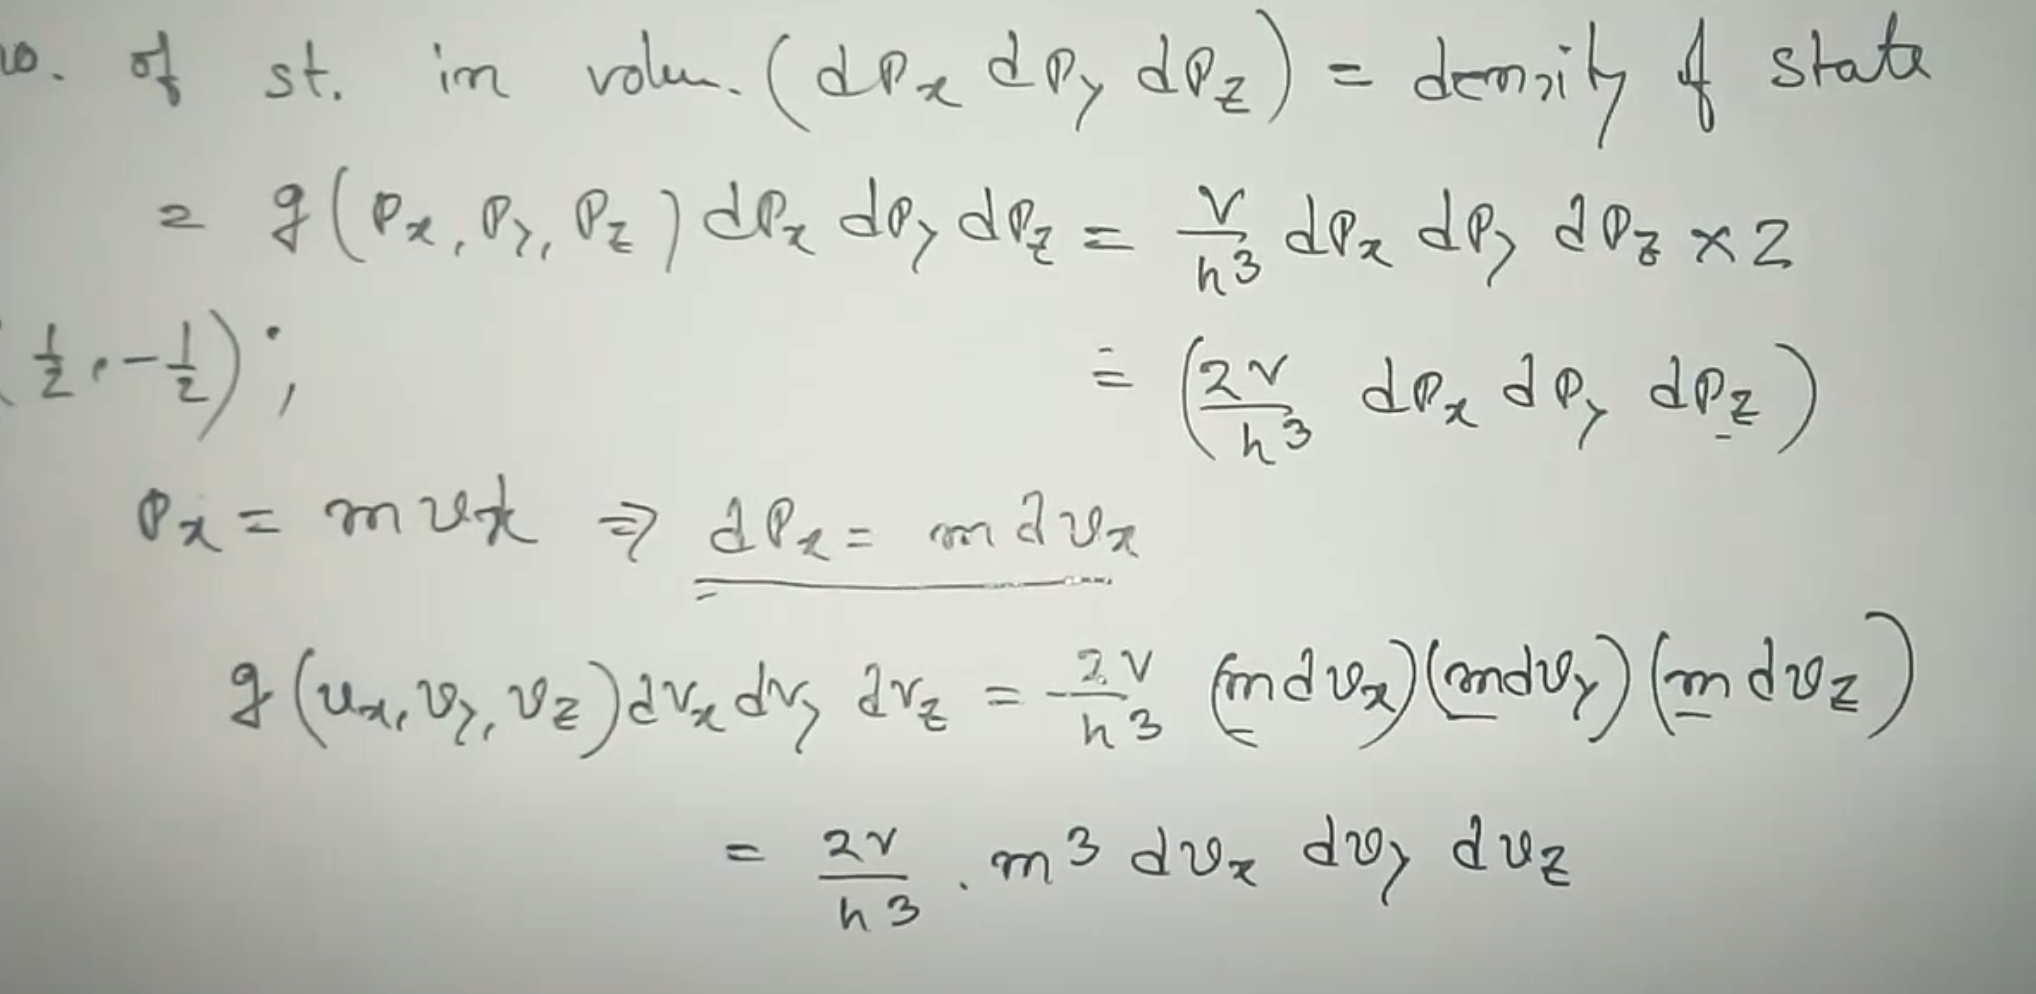 o. of st. in volum. (dPx dPy dPz) = density of state
= g(Px, Py, Pz) dPx dPy dPz = V/h³ dPx dPy dPz × 2
(½, -½);
= (2V/h³ dPx dPy dPz)
Px = mvx ⇒ dPx = mdvx
g(vx, vy, vz) dvx dvy dvz = 2V/h³ (mdvx)(mdvy)(mdvz)
= 2V/h³ . m³ dvx dvy dvz